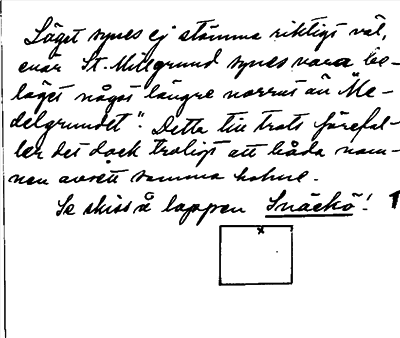 Läget synes ej stämma riktigt väl,
enär St. Millgrund synes vara be-
läget något längre norrut än "Me-
delgrundet". Detta till trots förefal-
ler det dock troligt att båda nam-
nen avsett samma holme.
Se skiss å lappen Snäckö!